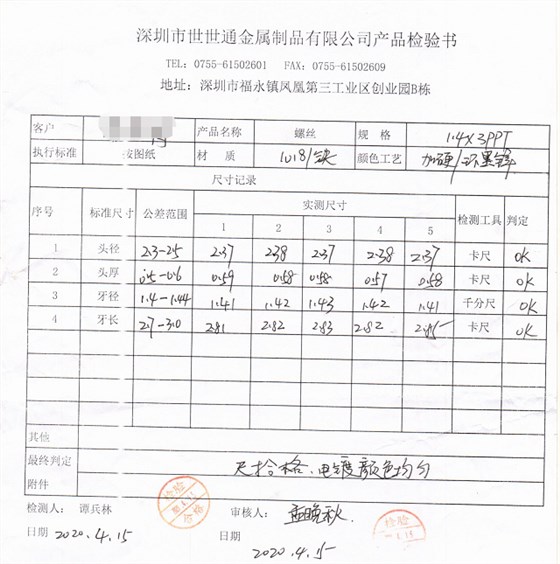 深圳市世世通金属制品有限公司产品检验书
TEL: 0755-61502601 FAX: 0755-61502609
地址：深圳市福永镇凤凰第三工业区创业园B栋
客户 产品名称 螺丝 规格 1.4×3PPT
执行标准 按图纸 材质 1018/铁 颜色工艺 加硬/环黑锌
尺寸记录
序号 标准尺寸 公差范围 实测尺寸 检测工具 判定
1 2 3 4 5
1 头径 2.3-2.5 2.37 2.38 2.37 2.38 2.37 卡尺 OK
2 头厚 0.5-0.6 0.59 0.58 0.58 0.57 0.58 卡尺 OK
3 牙径 1.4-1.44 1.41 1.42 1.43 1.42 1.41 千分尺 OK
4 牙长 2.7-3.0 2.81 2.82 2.83 2.82 2.85 卡尺 OK
其他
最终判定 尺寸合格、电镀颜色均匀
附件
检测人： 谭兵林 审核人： 晚秋
日期 2020.4.15
2020.4.15
检验
合格
检验